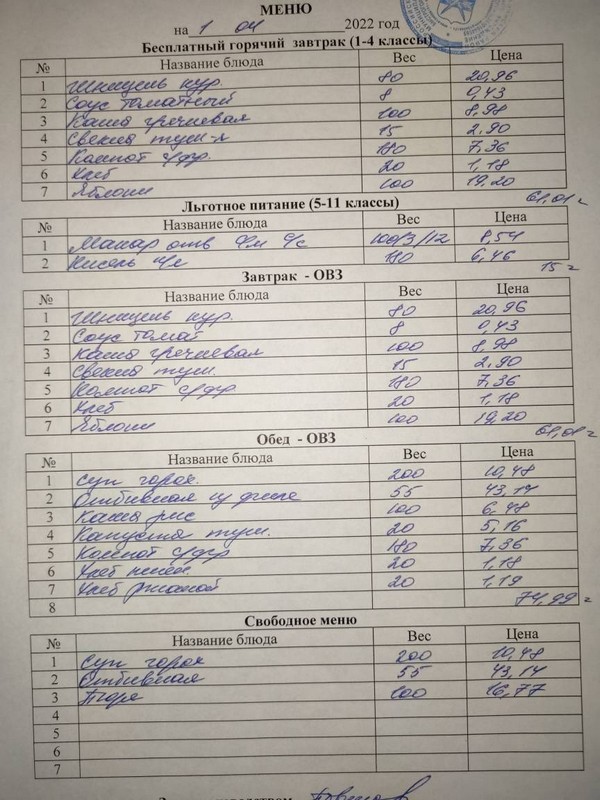 МЕНЮ
на 1 04 2022 год
Бесплатный горячий завтрак (1-4 классы)
№ Название блюда Вес Цена
1 Шницель кур. 80 20,96
2 Соус томатный 8 0,43
3 Каша гречневая 100 8,98
4 Свекла туш-я 15 2,90
5 Компот с/фр. 180 7,36
6 Хлеб 20 1,18
7 Яблоки 100 19,20
61,01
Льготное питание (5-11 классы)
№ Название блюда Вес Цена
1 Макар отв 100/3/12 8,54
2 Кисель 180 6,46
15
Завтрак - ОВЗ
№ Название блюда Вес Цена
1 Шницель кур. 80 20,96
2 Соус томат 8 0,43
3 Каша гречневая 100 8,98
4 Свекла туш. 15 2,90
5 Компот с/фр 180 7,36
6 Хлеб 20 1,18
7 Яблоки 100 19,20
61,01
Обед - ОВЗ
№ Название блюда Вес Цена
1 Суп горох. 200 10,48
2 Отбивная из филе 55 43,14
3 Каша рис 100 6,48
4 Капуста туш. 20 5,16
5 Компот с/фр 180 7,36
6 Хлеб пшен. 20 1,18
7 Хлеб ржаной 20 1,19
8 74,99
Свободное меню
№ Название блюда Вес Цена
1 Суп горох 200 10,48
2 Отбивная 55 43,14
3 Пюре 100 16,77
4
5
6
7